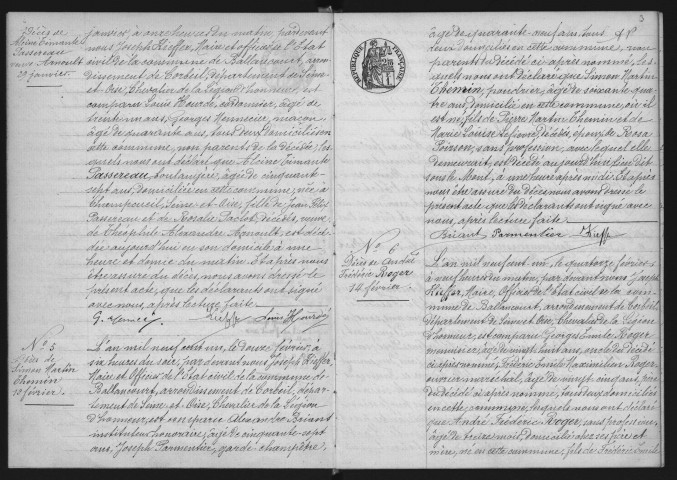 Décès de
Aloïse Eimanté
Passereau
veuve Arnoult
29 janvier.
janvier à onze heures du matin, par devant
nous Joseph Kieffer, Maire et officier de l'Etat
civil de la commune de Ballancourt, arron-
dissement de Corbeil, département de Seine-
et-Oise, Chevalier de la Légion d'honneur, est
comparu Louis Hourde, cordonnier, âgé de
trente ans, Georges Mennecier, maçon,
âgé de quarante ans, tous deux domiciliés en
cette commune, non parents de la décédée; les-
quels nous ont déclaré que Aloïse Eimanté
Passereau, boulangère, âgée de cinquante-
sept ans, domiciliée en cette commune, née à
Champcueil, Seine-et-Oise, fille de Jean
Passereau et de Rosalie décédés, veuve
de Théophile Alexandre Arnoult, est décé-
dée aujourd'hui en son domicile à une
heure et demie du matin. Et après nous
être assuré du décès, nous avons dressé le
présent acte, que les déclarants ont signé
avec nous, après lecture faite.
Kieffer Louis Hourde
N° 5
Décès de
Simon Martin
Themin
12 février.
L'an mil neuf cent un, le douze février, à
six heures du soir, par devant nous Joseph Kieffer,
Maire et Officier de l'Etat civil de la commune de
Ballancourt, arrondissement de Corbeil, dépar-
tement de Seine-et-Oise, Chevalier de la Légion
d'honneur, est comparu Alexandre Briant
instituteur honoraire, âgé de cinquante-sept
ans, Joseph Parmentier, garde-champêtre,
3
REPUBLIQUE FRANÇAISE
âgé de quarante-neuf ans, tous
deux domiciliés en cette commune, non
parents du décédé ci après nommé, les-
quels nous ont déclaré que Simon Martin
Themin, poudrier, âgé de soixante qua-
tre ans, domicilié en cette commune, où il
est né, fils de Pierre Martin Themin et de
Marie Louise décédés, époux de Rosa
Poirson, sans profession, avec laquelle il
demeurait, est décédé aujourd'hui
le Mont, à une heure après midi. Et après
nous être assuré du décès, nous avons dressé le
présent acte que les déclarants ont signé avec
nous, après lecture faite.
Briant Parmentier Kieffer
N° 6
Décès de André
Frédéric Roger
14 février.
L'an mil neuf cent un, le quatorze février
à neuf heures du matin, par devant nous Joseph
Kieffer, Maire, Officier de l'état civil de la com-
mune de Ballancourt, arrondissement de Corbeil,
département de Seine-et-Oise, Chevalier de la Légion
d'honneur, est comparu Georges Emile Roger
menuisier, âgé de vingt huit ans, oncle du décédé
ci après nommé, Frédéric Emile Maximilien Roger,
ouvrier maréchal, âgé de vingt cinq ans, père
du décédé ci après nommé, tous deux domiciliés
en cette commune, lesquels nous ont déclaré
que André Frédéric Roger, sans profession,
âgé de treize mois, domicilié chez ses père et
mère, né en cette commune, fils de Frédéric Emile